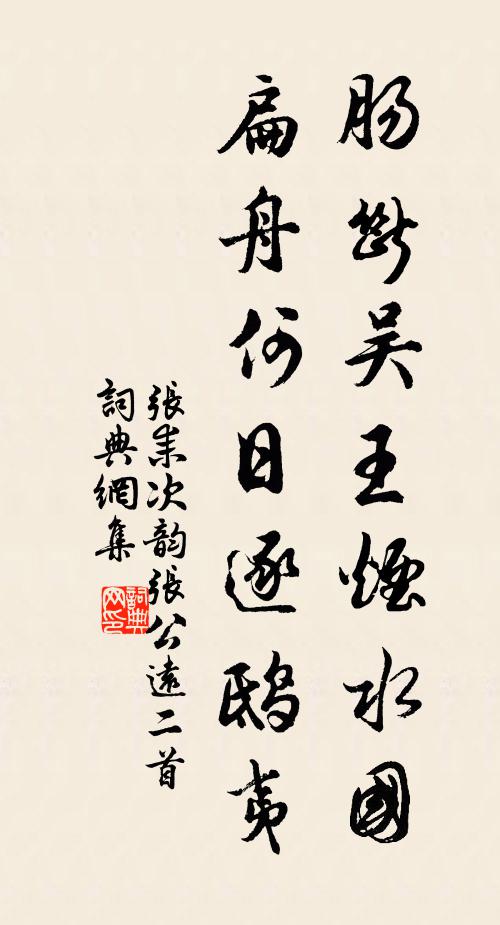 肠斷吴王煙水國
扁舟何日逐鸱夷
張耒次韵張公遠二首
詞典網集
詞典
网印